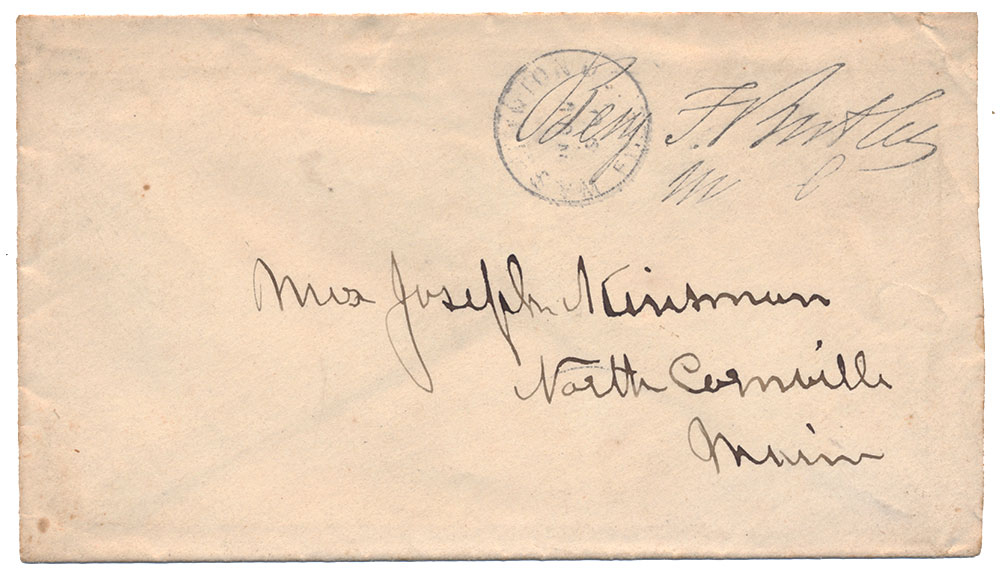 Benj F. Butler
M C
Mrs Joseph Kinsman
North Cornville
Maine